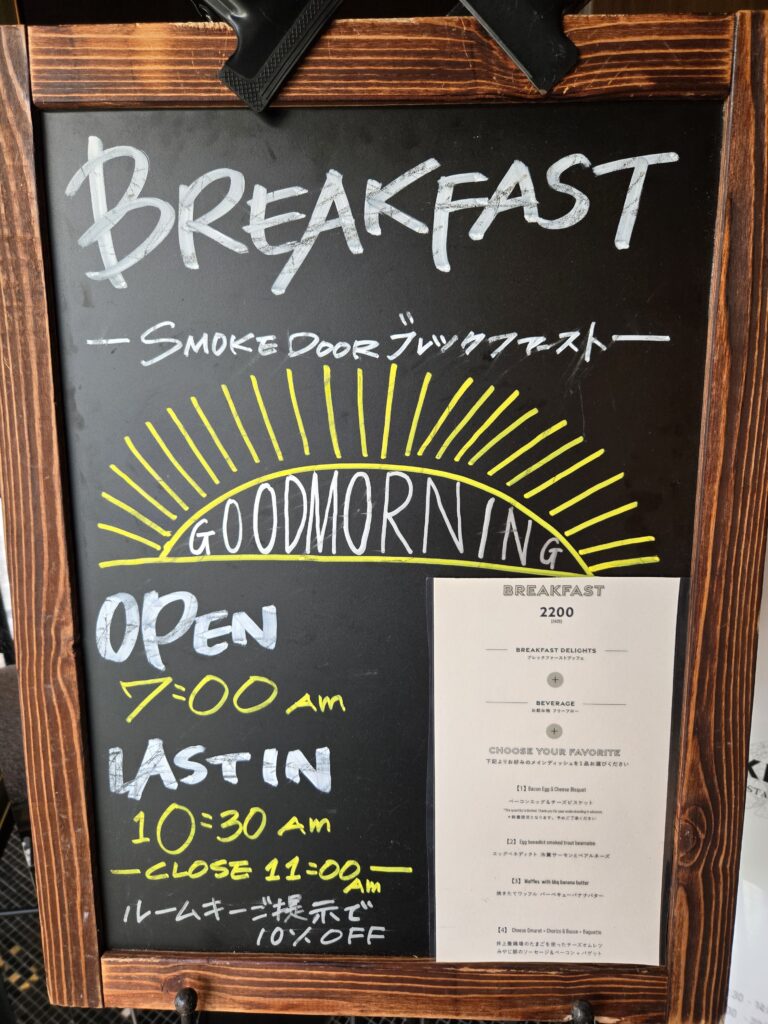 BREAKFAST
SMOKE DOOR ブレックファースト
GOODMORNING
OPEN
7:00 AM
LAST IN
10:30 AM
CLOSE 11:00 AM
ルームキーご提示で
10% OFF
BREAKFAST
2200
BREAKFAST DELIGHTS
ブレックファーストブッフェ
+
BEVERAGE
お飲み物 フリーフロー
+
CHOOSE YOUR FAVORITE
下記よりお好みのメインディッシュを1品お選びください
【1】Bacon Egg & Cheese Bisquet
ベーコンエッグ&チーズビスケット
*数量限定となります。予めご了承ください
【2】Egg benedict smoked trout bearnaise
エッグベネディクト 冷燻サーモンとベアルネーズ
【3】Waffles with bbq banana butter
焼きたてワッフル バーベキューバナナバター
【4】Cheese Omuret + Chorizo & Bacon + Baguette
井上養鶏場のたまごを使ったチーズオムレツ
みやじ豚のソーセージ&ベーコン + バゲット